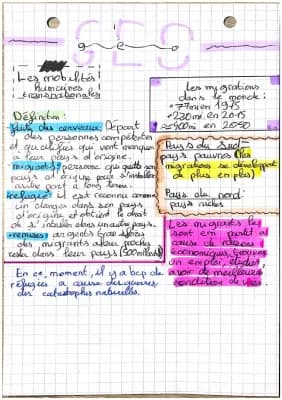 GEO
géo
Les mobilités
humaines
transnationales
Définition :
fuite des cerveaux: Départ
des personnes compétentes
et qualifiés qui vont manquer
a leur pays d'origine.
migrants: personne qui quitte son
pays d'origine pour s'installer
autre part à long terme.
refugié: il est reconnu comme
en danger dans son pays
d'origine et obtient le droit
de s'insérer dans un autre pays.
remises: argents
des migrants a leur proches
resta dans leur pays (500milliards)
En ce, moment, il y a bcp de
réfugiés a cause des guerres,
des catastrophes naturelles.
Les migrations
dans le monde:
• 77 m en 1975
• 230 mi en 2015
≈ 400 mi en 2050
Pays du Sud=
pays pauvres (les
migrations se développent
de plus en plus)
Pays du nord:
pays riches
Les migrants le
sont en parti à
cause de raisons
économiques, trouver
un emploi, études,
avoir de meilleures
condition de vies.